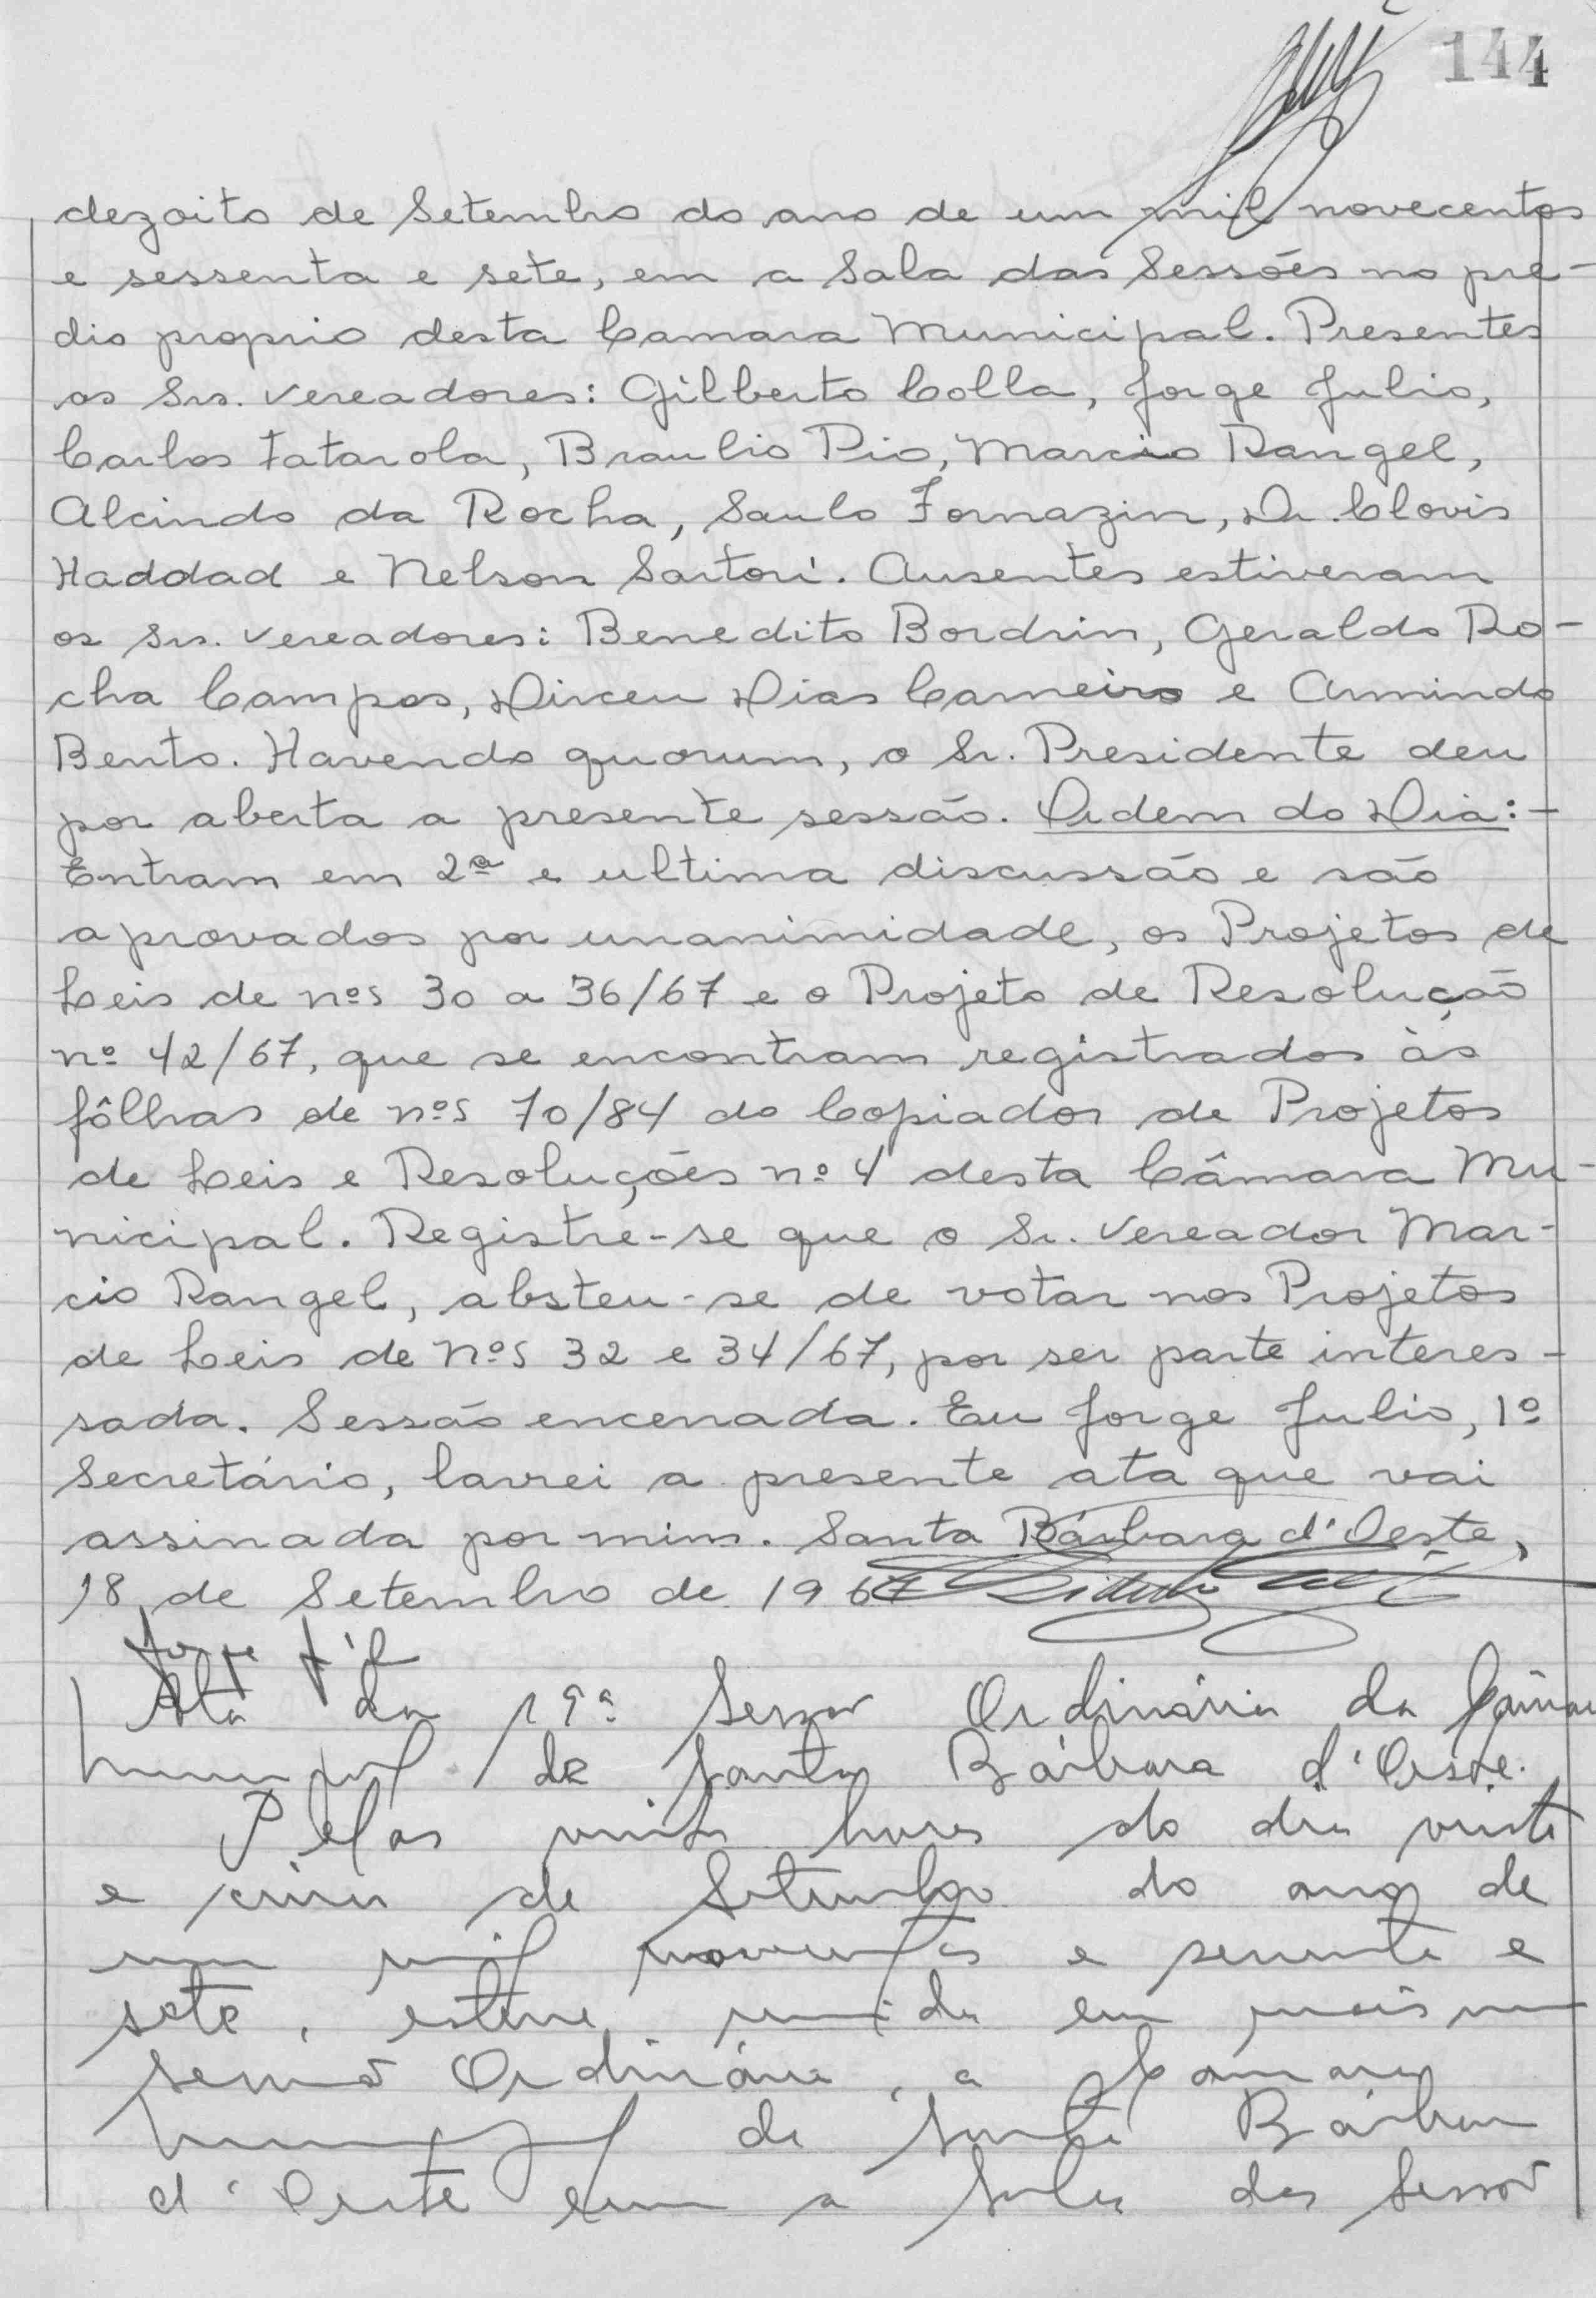 144
dezoito de Setembro do ano de um mil novecentos
e sessenta e sete, em a Sala das Sessões no pre-
dio proprio desta Camara Municipal. Presentes
os Srs. Vereadores: Gilberto Colla, Jorge Julio,
Carlos Fatarola, Braulio Pio, Marcio Rangel,
Alcindo da Rocha, Saulo Fornazin, Dr. Clovis
Haddad e Nelson Sartori. Ausentes estiveram
os Srs. Vereadores: Benedito Bordrin, Geraldo Ro-
cha Campos, Dirceu Dias Carneiro e Armindo
Bento. Havendo quorum, o Sr. Presidente deu
por aberta a presente sessão. Ordem do Dia:-
Entram em 2ª e ultima discussão e são
aprovados por unanimidade, os Projetos de
Leis de nºs 30 a 36/67 e o Projeto de Resolução
nº 42/67, que se encontram registrados às
fôlhas de nºs 70/84 do Copiador de Projetos
de Leis e Resoluções nº 4 desta Câmara Mu-
nicipal. Registre-se que o Sr. Vereador Mar-
cio Rangel, absteu-se de votar nos Projetos
de Leis de nºs 32 e 34/67, por ser parte interes-
sada. Sessão encerrada. Eu Jorge Julio, 1º
Secretário, lavrei a presente ata que vai
assinada por mim. Santa Bárbara d'Oeste,
18 de Setembro de 1967
Ata da 19ª Sessão Ordinária da Câmara
Municipal de Santa Bárbara d'Oeste.
Pelas vinte horas do dia vinte
e cinco de Setembro do ano de
um mil novecentos e sessenta e
sete, esteve reunida em mais uma
sessão Ordinária, a Câmara
Municipal de Santa Bárbara
d'Oeste em a Sala das Sessões